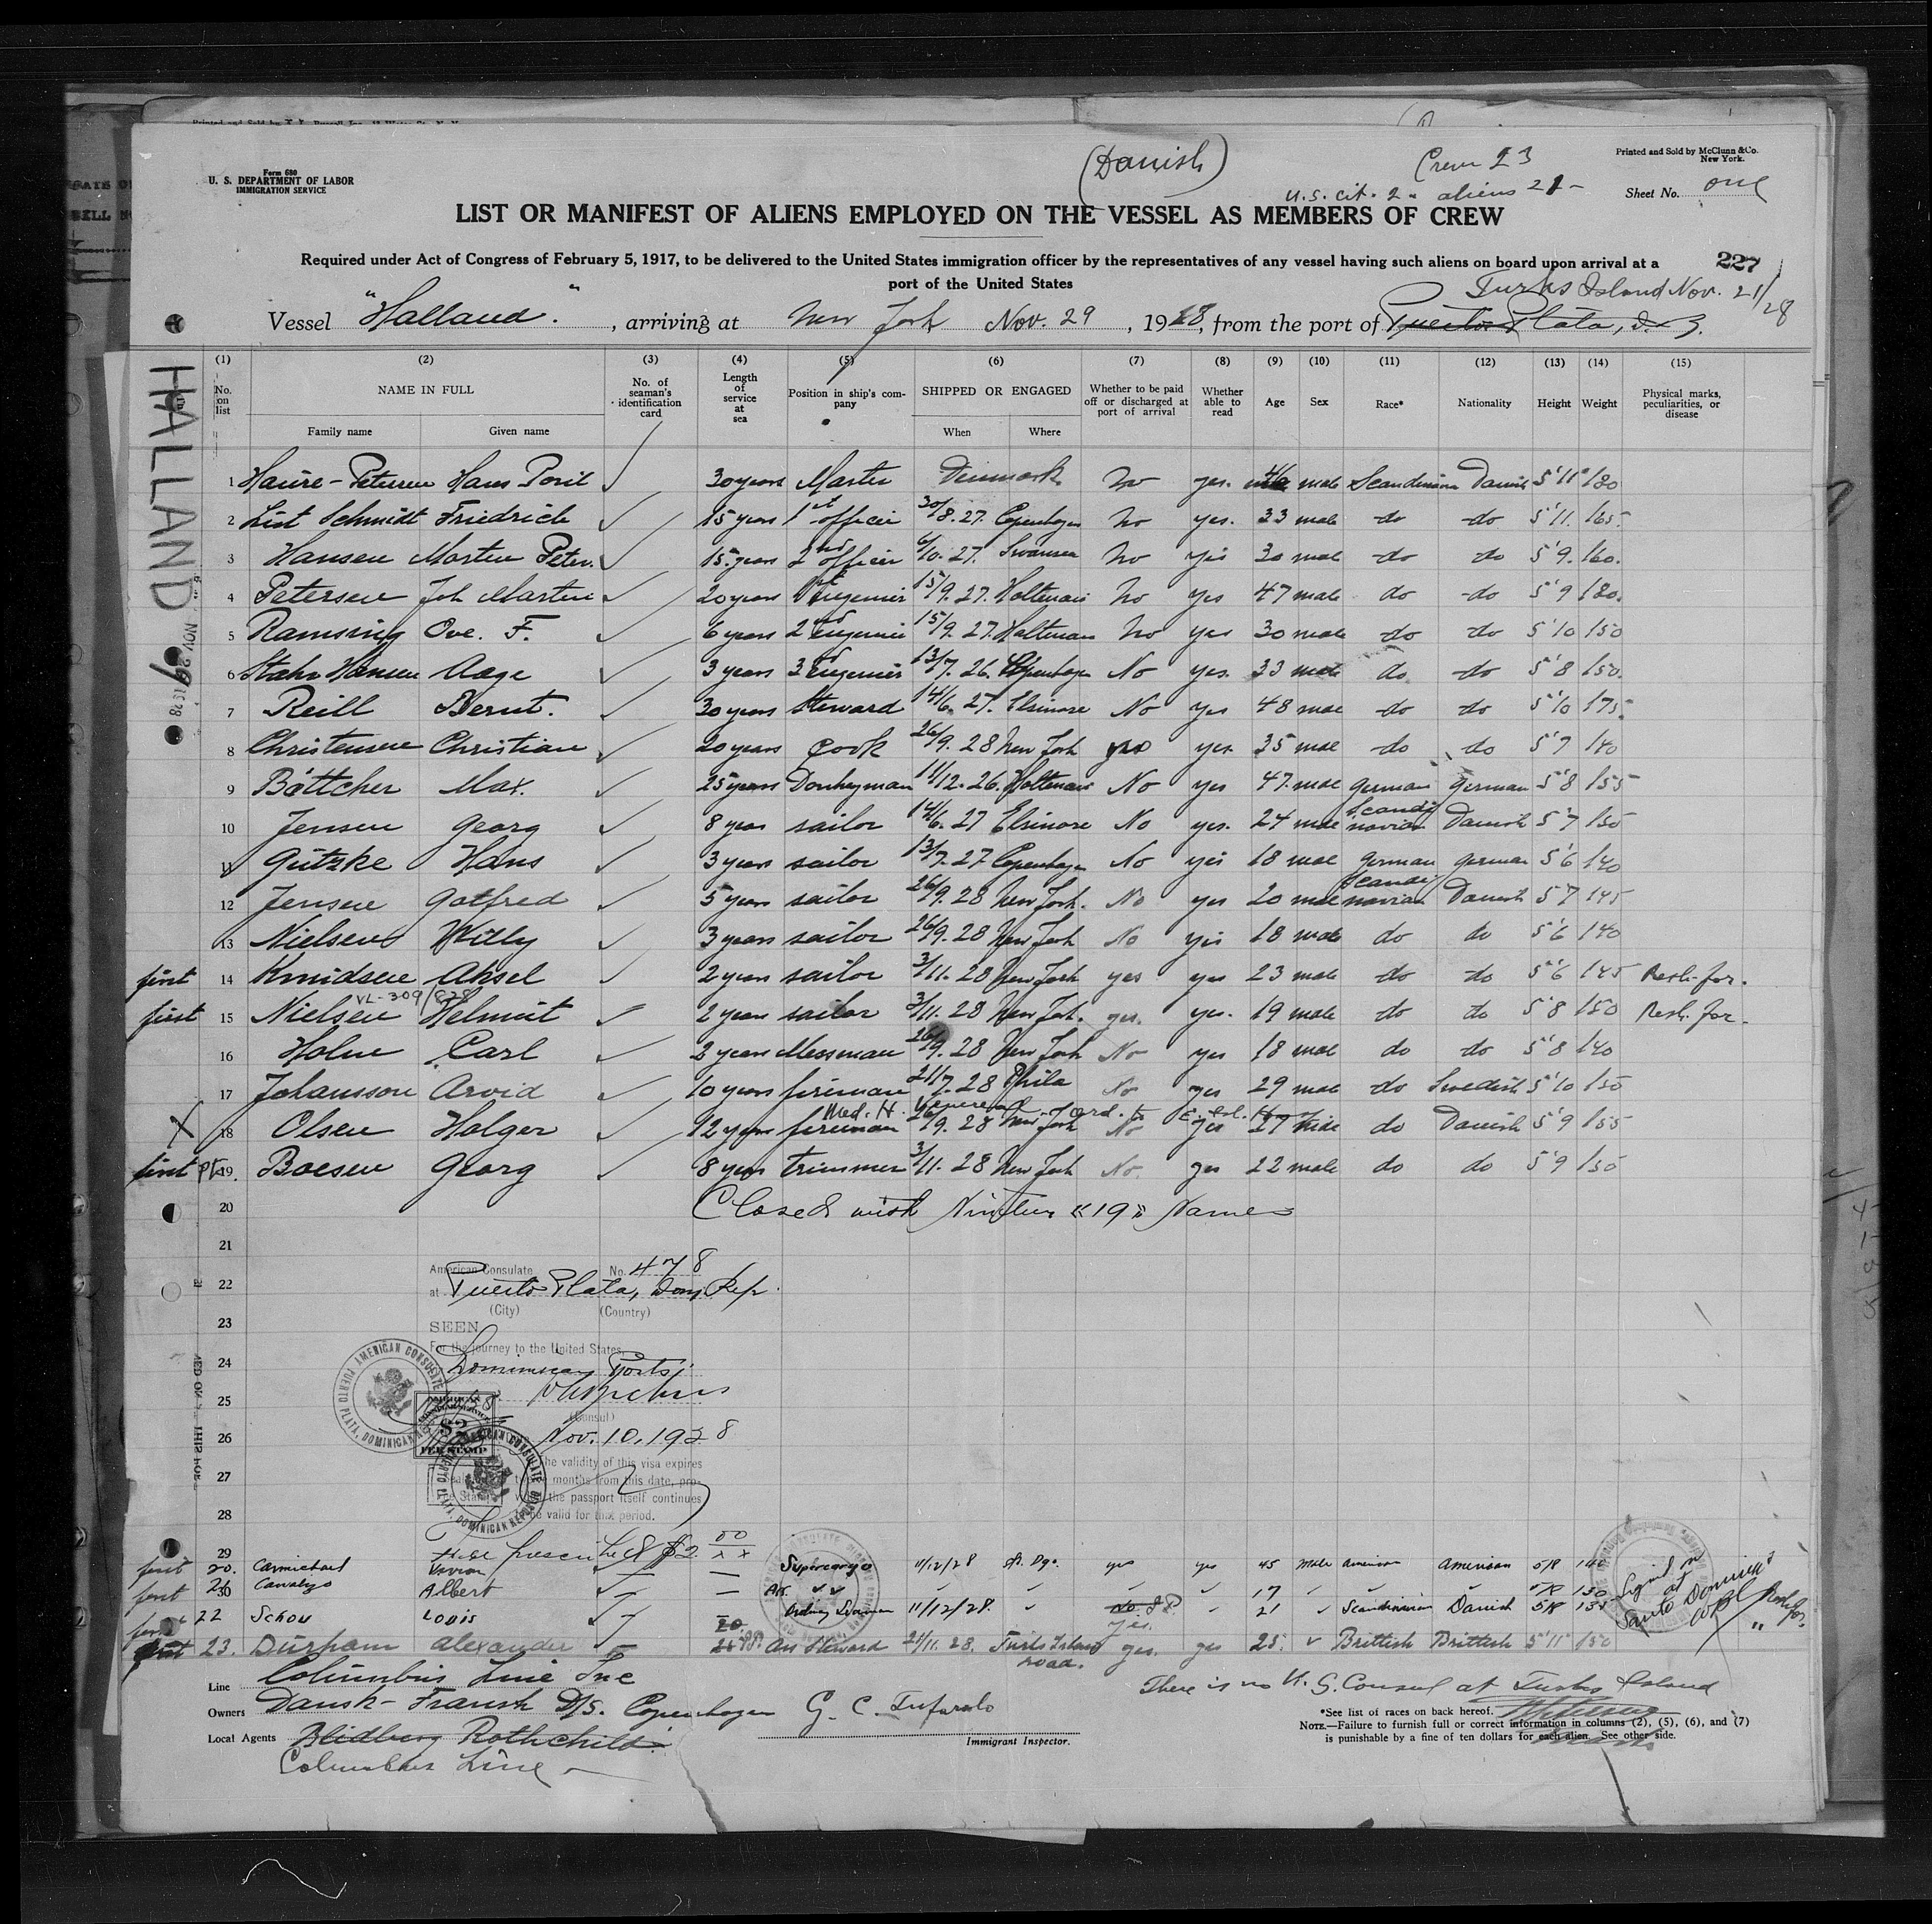 Form 680
U. S. DEPARTMENT OF LABOR
IMMIGRATION SERVICE
(Danish)
Crew 23
U.S. cit. 2 - aliens 21 -
Printed and Sold by McClunn & Co.
New York.
Sheet No. one
LIST OR MANIFEST OF ALIENS EMPLOYED ON THE VESSEL AS MEMBERS OF CREW
Required under Act of Congress of February 5, 1917, to be delivered to the United States immigration officer by the representatives of any vessel having such aliens on board upon arrival at a
port of the United States
227
Turks Island Nov. 21/28
Vessel "Halland." , arriving at New York Nov. 29 , 1928, from the port of Puerto Plata,
HALLAND
(1) (2) (3) (4) (5) (6) (7) (8) (9) (10) (11) (12) (13) (14) (15)
No. on list
NAME IN FULL
Family name Given name
No. of seaman's identification card
Length of service at sea
Position in ship's company
SHIPPED OR ENGAGED
When Where
Whether to be paid off or discharged at port of arrival
Whether able to read
Age Sex Race* Nationality Height Weight
Physical marks, peculiarities, or disease
1 Hans 30 years Master Denmark no yes. male Scandinavian Danish 5'11" 180
2 List Schmidt Friedrich 15 years 1st officer 30/8. 27. Copenhagen no yes. 33 male do do 5'11. 165.
3 Hansen Morten Peter. 15 years 2nd officer 6/10. 27. Swansea no yes 30 male do do 5'9. 160.
4 Petersen Joh Martin 20 years 1st Engenier 15/9. 27. Holtenau no yes 47 male do do 5'9 180.
5 Ramsing Ove. F. 6 years 2nd Engenier 15/9. 27. Holtenau no yes 30 male do do 5'10 150
6 Hansen Aage 3 years 3rd Engenier 13/7. 26. Copenhagen No yes. 33 male do do 5'8 150.
7 Reill Bernt. 30 years Steward 14/6. 27. Elsinore No yes 48 male do do 5'10 175.
8 Christensen Christian 20 years Cook 26/9. 28 New York yes yes. 35 male do do 5'7 140
9 Böttcher Max. 25 years Donkeyman 11/12. 26. Holtenau No yes 47. male German German 5'8 155
10 Jensen Georg 8 years sailor 14/6. 27 Elsinore No yes. 24 male Scandinavian Danish 5'7 150
11 Gützke Hans 3 years sailor 13/7. 27 Copenhagen No yes 18 male German German 5'6 140
12 Jensen Gotfred 5 years sailor 26/9. 28 New York. No yes 20 male Scandinavian Danish 5'7 145
13 Nielsen Willy 3 years sailor 26/9. 28 New York No yes 18 male do do 5'6 140
first 14 Knudsen Aksel 2 years sailor 3/11. 28 New York yes yes 23 male do do 5'6 145
VL-309/828
first 15 Nielsen Helmut 2 years sailor 3/11. 28 New York. yes. yes. 19 male do do 5'8 150
16 Holm Carl 2 years Messman 26/9. 28 New York No yes 18 male do do 5'8 140
17 Johansson Arvid 10 years fireman 21/7. 28 Phila No yes 29 male do Swedish 5'10 150
X 18 Olsen Holger 12 years fireman 26/9. 28 New York No yes 27 male do Danish 5'9 155
first 19. Boesen Georg 8 years trimmer 3/11. 28 New York No. yes 22 male do do 5'9 150
20 Closed with Nineteen "19" Names
21
American Consulate No. 478
22 at Puerto Plata, Dom. Rep.
(City) (Country)
23 SEEN
For the journey to the United States
24 Dominican Ports
25
(Consul)
26 Nov. 10, 1928
27 The validity of this visa expires
months from this date, pro-
the passport itself continues
28 valid for this period.
AMERICAN CONSULATE
PUERTO PLATA, DOMINICAN REPUBLIC
$2
FEE STAMP
29 Fee prescribed $2.00
first 20. Carmichael Vivian — Supercargo 11/12/28 yes yes 45 male American American 5/8 140
first 21 Albert — 17 150
30
first 22 Schou Louis Ordinary Seaman 11/12/28. yes. 21 Scandinavian Danish 5/8 135
first 23. Durham Alexander Ass Steward 21/11. 28. Turks Island road. yes. yes 25. Brittish Brittish 5'11" 150
Signed on at Santo Domingo
Line Columbus Line Inc
Owners Dansk-Fransk D/S. Copenhagen
Local Agents Rothchild
Columbus Line
Immigrant Inspector.
There is no U. S. Consul at Turks Island
*See list of races on back hereof.
NOTE.—Failure to furnish full or correct information in columns (2), (5), (6), and (7)
is punishable by a fine of ten dollars for each alien. See other side.